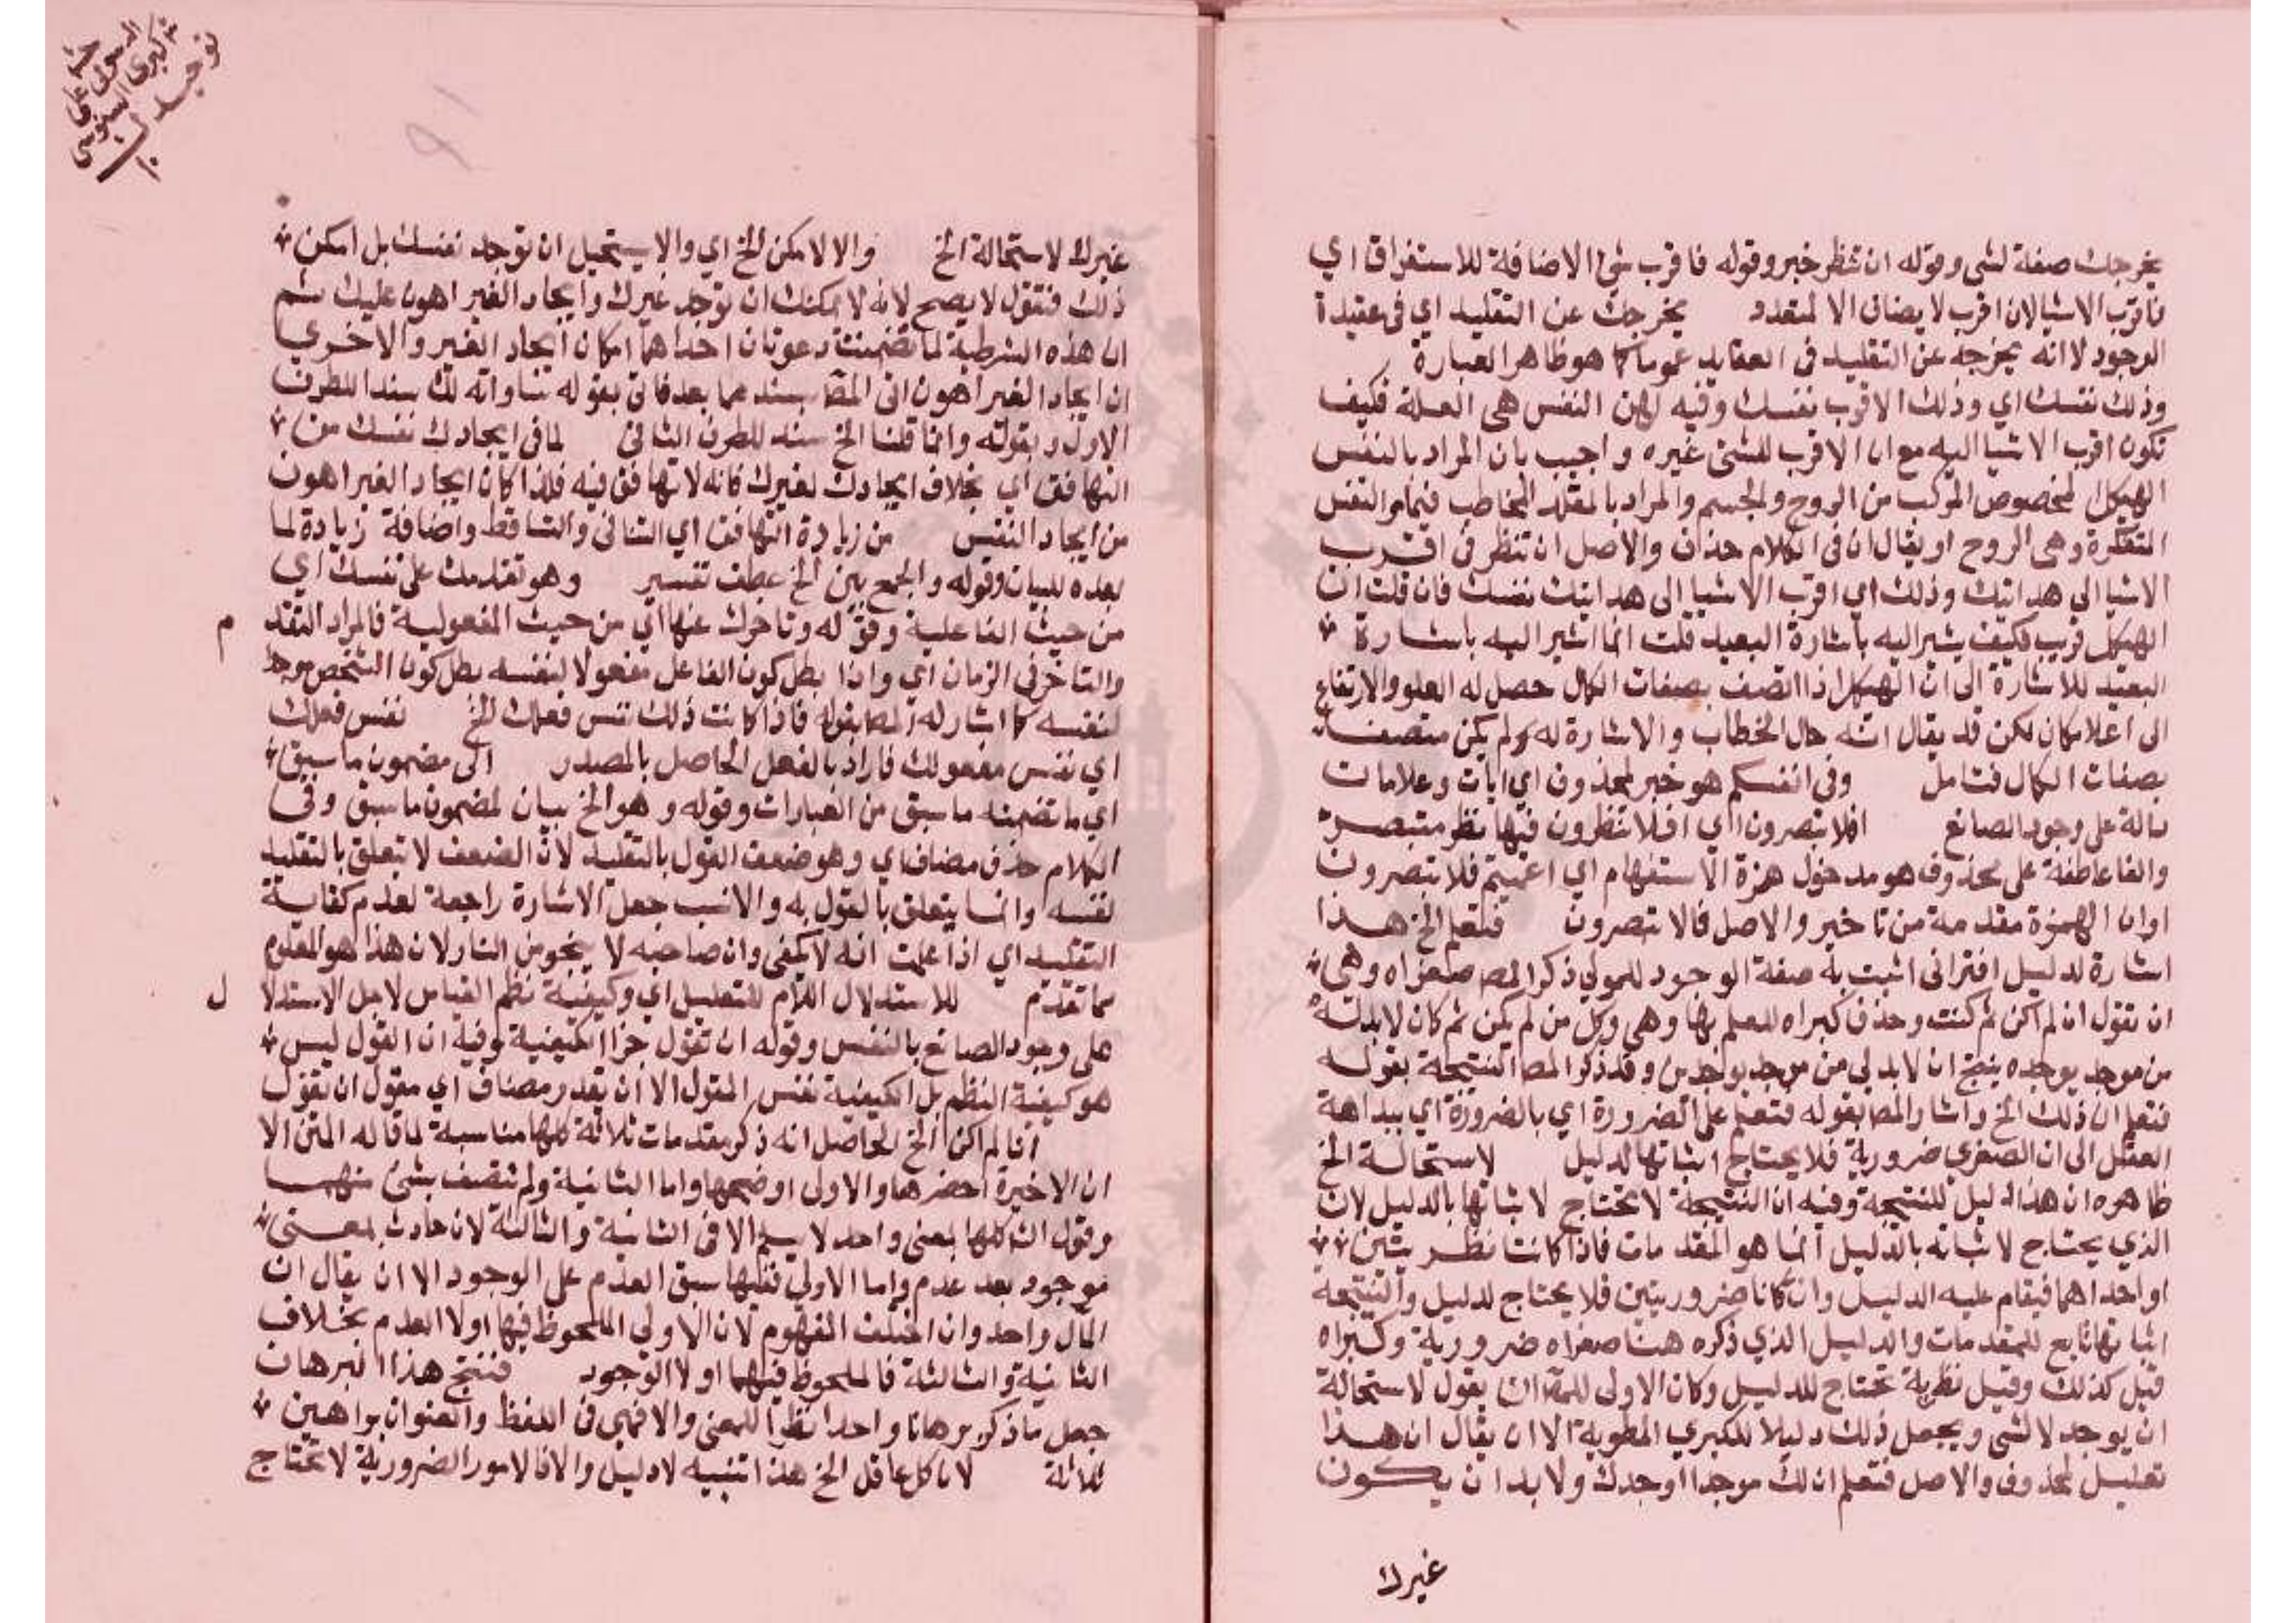 يخرجك صفة لشي وقوله ان تنظر خبر وقوله فاقرب شي الاضافة للاستغراق اي
فاقرب الاشيا لان اقرب لا يضاف الا لمتعدد يخرجك عن التقليد اي في عقيدة
الوجود لا انه يخرجه عن التقليد في العقايد عموما كما هو ظاهر العبارة
وذلك نفسك اي وذلك الاقرب نفسك وفيه ان النفس هي العلة فكيف
تكون اقرب الاشيا اليه مع ان الاقرب للشي غيره واجيب بان المراد بالنفس
الهيكل المخصوص المركب من الروح والجسم والمراد بالمقلد المخاطب فيما مر النفس
المتفكرة وهي الروح او يقال ان في الكلام حذف والاصل ان تنظر في اقرب
الاشيا الى هدايتك وذلك اي اقرب الاشيا الى هدايتك نفسك فان قلت ان
الهيكل قريب فكيف يشير اليه باشارة البعيد قلت انما اشير اليه باشارة
البعيد للاشارة الى ان الهيكل اذا اتصف بصفات الكمال حصل له العلو والارتفاع
الى اعلا مكان لكن قد يقال انه حال الخطاب والاشارة له لم يكن متصفا
بصفات الكمال فتامل وفي انفسكم هو خبر لمحذوف اي ايات وعلامات
دالة على وجود الصانع افلا تبصرون اي افلا تنظرون فيها نظر متبصر
والفا عاطفة على محذوف هو مدخول همزة الاستفهام اي اعميتم فلا تبصرون
او ان الهمزة مقدمة من تاخير والاصل فالا تبصرون فتعلم الخ هذا
اشارة لدليل اقتراني اثبت به صفة الوجود للمولي ذكر المص صغراه وهي
ان تقول ان لم اكن ثم كنت وحذف كبراه للعلم بها وهي وكل من لم يكن ثم كان لابد له
من موجد يوجده ينتج ان لابد لي من موجد يوجدني وقد ذكر المص النتيجة بقوله
فتعلم ان ذلك الخ واشار المص بقوله فتعلم على الضرورة اي بالضرورة اي ببداهة
العقل الى ان الصغري ضرورية فلا يحتاج اثباتها لدليل لاستحالة الخ
ظاهره ان هذا دليل للنتيجة وفيه ان النتيجة لا تحتاج لاثباتها بالدليل لان
الذي يحتاج لاثباته بالدليل انما هو المقدمات فاذا كانتا نظريتين
او احداهما فيقام عليه الدليل وان كانا ضروريتين فلا يحتاج لدليل والنتيجة
اثباتها تابع للمقدمات والدليل الذي ذكره هنا صغراه ضرورية وكبراه
قيل كذلك وقيل نظرية تحتاج للدليل وكان الاولى للمص ان يقول لاستحالة
ان يوجد لا لشي ويجعل ذلك دليلا للكبري المطوية الا ان يقال ان هذا
تعليل لمحذوف والاصل فتعلم ان لك موجدا اوجدك ولابد ان يكون
غيرك
غيرك لاستحالة الخ والا لامكن الخ اي والا يستحيل ان توجد نفسك بل امكن
ذلك فنقول لا يصح لانه لا يمكنك ان توجد غيرك وايجاد الغير اهون عليك ثم
ان هذه الشرطية لما تضمنت دعوتان احداهما امكان ايجاد الغير والاخري
ان ايجاد الغير اهون اتى المص بسندهما بعد فاتى بقوله لمساواته لك سندا للطرف
الاول وبقوله وانما قلنا الخ سند للطرف الثاني لما في ايجادك نفسك من
التهافت اي بخلاف ايجادك لغيرك فانه لا تهافت فيه فلذا كان ايجاد الغير اهون
من ايجاد النفس من زيادة التهافت اي التنافي والتساقط واضافة زيادة لما
بعده للبيان وقوله والجمع بين الخ عطف تفسير وهو تقدمك على نفسك اي
من حيث الفاعلية وقوله وتاخرك عنها اي من حيث المفعولية فالمراد التقدم
والتاخر في الزمان اي واذا بطل كون الفاعل مفعولا لنفسه بطل كون الشخص موجد
لنفسه كما اشار له المص بقوله فاذا كانت ذلك نفس فعلك الخ نفس فعلك
اي نفس مفعولك فاراد بالفعل الحاصل بالمصدر الى مضمون ما سبق
اي ما تضمنه ما سبق من العبارات وقوله وهو الخ بيان لمضمون ما سبق وفي
الكلام حذف مضاف اي وهو ضعف القول بالتقليد لان الضعف لا يتعلق بالتقليد
نفسه وانما يتعلق بالقول به والانسب جعل الاشارة راجعة لعدم كفاية
التقليد اي اذا علمت انه لا يكفي وان صاحبه لا ينجو من النار لان هذا هو المعلوم
مما تقدم للاستدلال اللام للتعليل اي وكيفية نظم القياس لاجل الاستدلال
على وجود الصانع بالنفس وقوله ان تقول خبر الكيفية وفيه ان القول ليس
هو كيفية النظم بل الكيفية نفس المقول الا ان يقدر مضاف اي مقول ان تقول
انا لم اكن الخ الحاصل انه ذكر مقدمات ثلاثة كلها مناسبة لما قاله المتن الا
ان الاخيرة احضرها والاولى اوضحها واما الثانية ولم تتصف بشئ منهما
وقول الش كلها بمعنى واحد لا يسلم الا في الثانية والثالثة لان حادث بمعنى
موجود بعد عدم واما الاولي ففيها سبق العدم على الوجود الا ان يقال ان
المآل واحد وان اختلف المفهوم لان الاولي الملحوظ فيها اولا العدم بخلاف
الثانية والثالثة فالملحوظ فيهما اولا الوجود فينتج هذا البرهان
جعل ما ذكر برهانا واحدا نظرا للمعنى والا فهي في اللفظ والعنوان براهين
ثلاثة لان كل عاقل الخ هذا تنبيه لا دليل والا فالامور الضرورية لا تحتاج